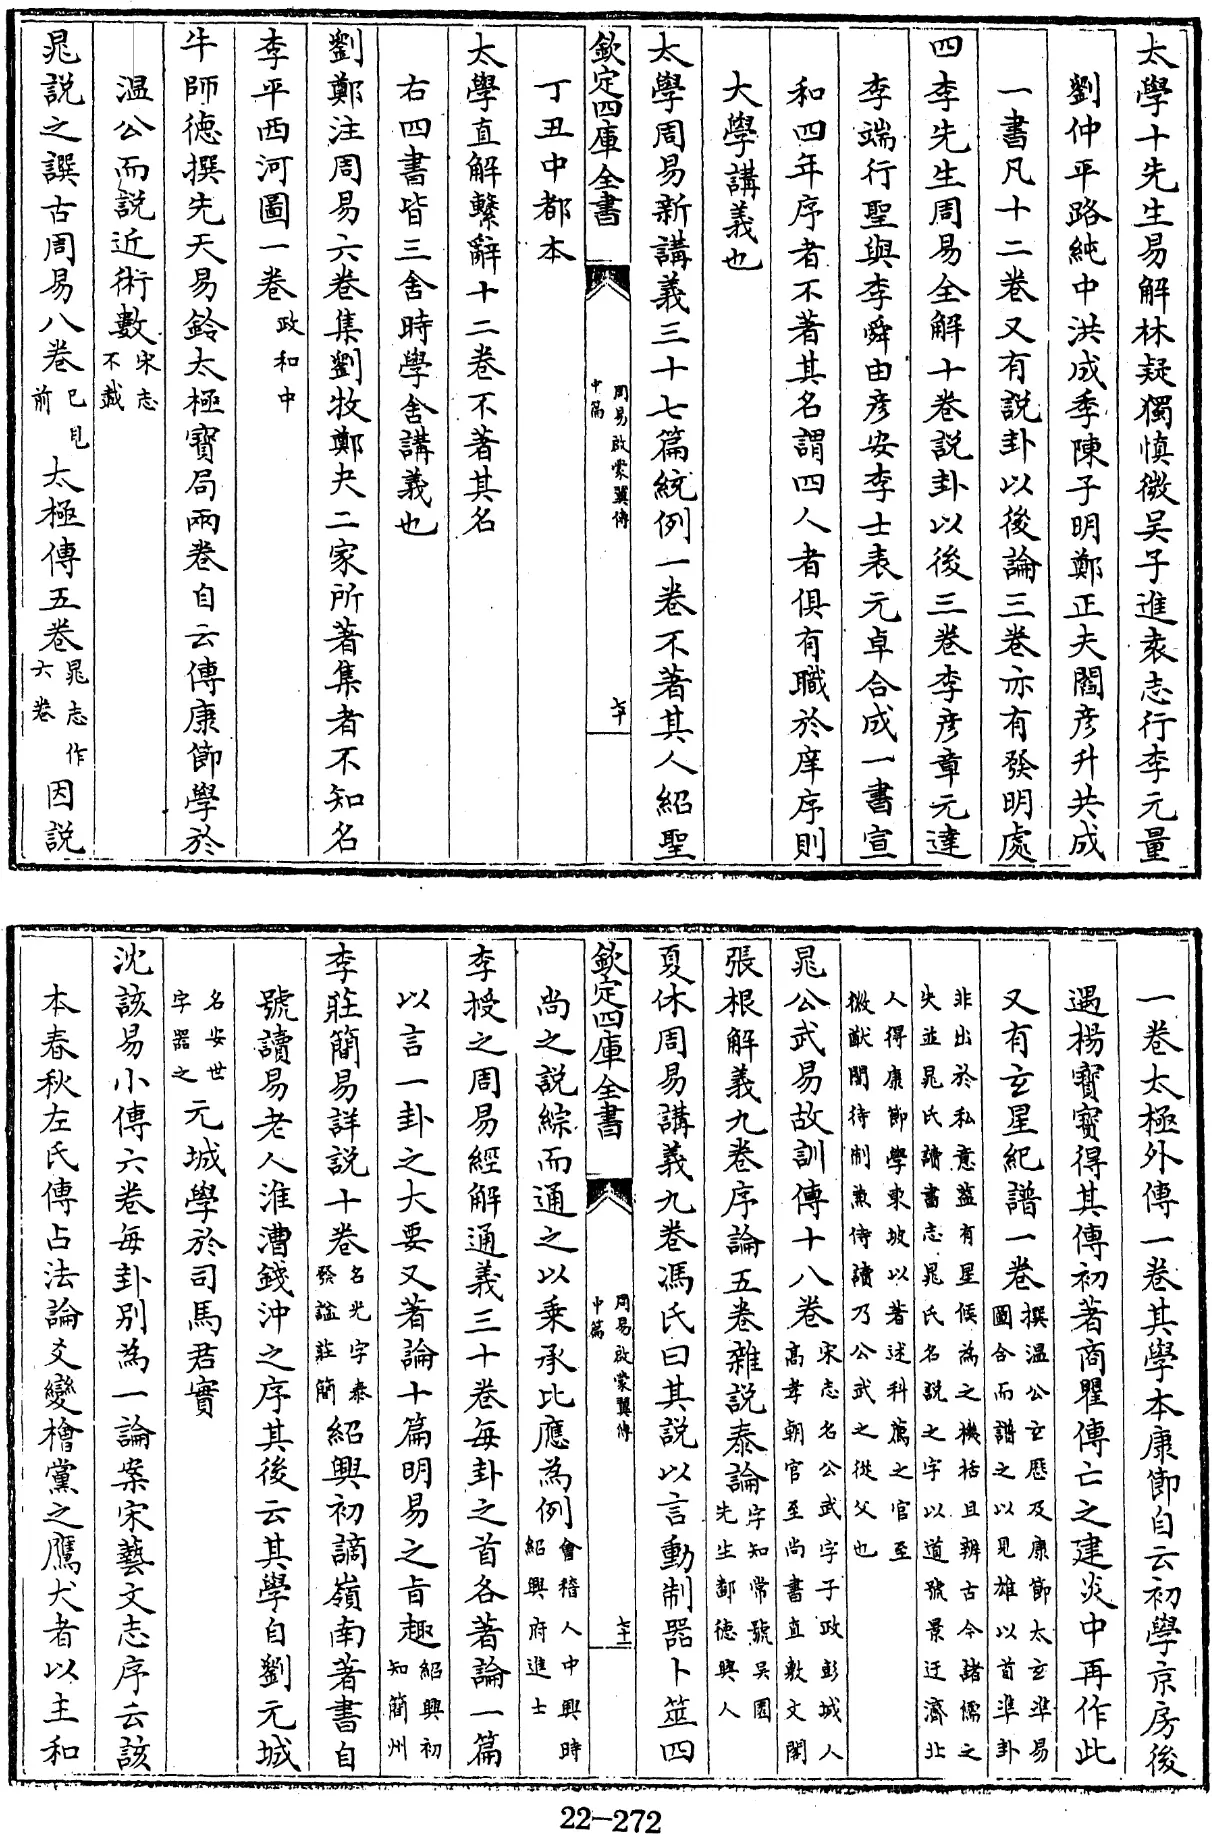 太學十先生易解林疑獨慎微吴子進袁志行李元量
劉仲平路純中洪成季陳子明鄭正夫閻彦升共成
一書凡十二卷又有説卦以後論三卷亦有發明處
四李先生周易全解十卷説卦以後三卷李彦章元達
李端行聖與李舜由彦安李士表元卓合成一書宣
和四年序者不著其名謂四人者俱有職於庠序則
大學講義也
太學周易新講義三十七篇統例一卷不著其人紹聖
欽定四庫全書
周易啟蒙翼傳
中篇
七十
丁丑中都本
太學直解繫辭十二卷不著其名
右四書皆三舍時學舍講義也
劉鄭注周易六卷集劉牧鄭夬二家所著集者不知名
李平西河圖一卷政和中
牛師德撰先天易鈐太極寶局兩卷自云傳康節學於
温公而説近術數宋志不載
晁説之譔古周易八卷已見前太極傳五卷晁志作六卷因説
一卷太極外傳一卷其學本康節自云初學京房後
遇楊寶寶得其傳初著商瞿傳亡之建炎中再作此
又有玄星紀譜一卷撰温公玄厯及康節太玄準易圖合而譜之以見雄以首準卦
非出於私意蓋有星候為之機括且辨古今諸儒之失並晁氏讀書志晁氏名説之字以道號景迂濟北
人得康節學東坡以著述科薦之官至徽猷閣待制兼侍讀乃公武之從父也
晁公武易故訓傳十八卷宋志名公武字子政彭城人高孝朝官至尚書直敷文閣
張根解義九卷序論五卷雜説泰論字知常號吴園先生鄱德興人
夏休周易講義九卷馮氏曰其説以言動制器卜筮四
欽定四庫全書
周易啟蒙翼傳
中篇
七十一
尚之説綜而通之以乗承比應為例會稽人中興時紹興府進士
李授之周易經解通義三十卷每卦之首各著論一篇
以言一卦之大要又著論十篇明易之旨趣紹興初知簡州
李莊簡易詳説十卷名光字泰發諡莊簡紹興初謫嶺南著書自
號讀易老人淮漕錢沖之序其後云其學自劉元城
名安世字器之元城學於司馬君實
沈該易小傳六卷每卦别為一論案宋藝文志序云該
本春秋左氏傳占法論爻變檜黨之鷹犬者以主和
22-272